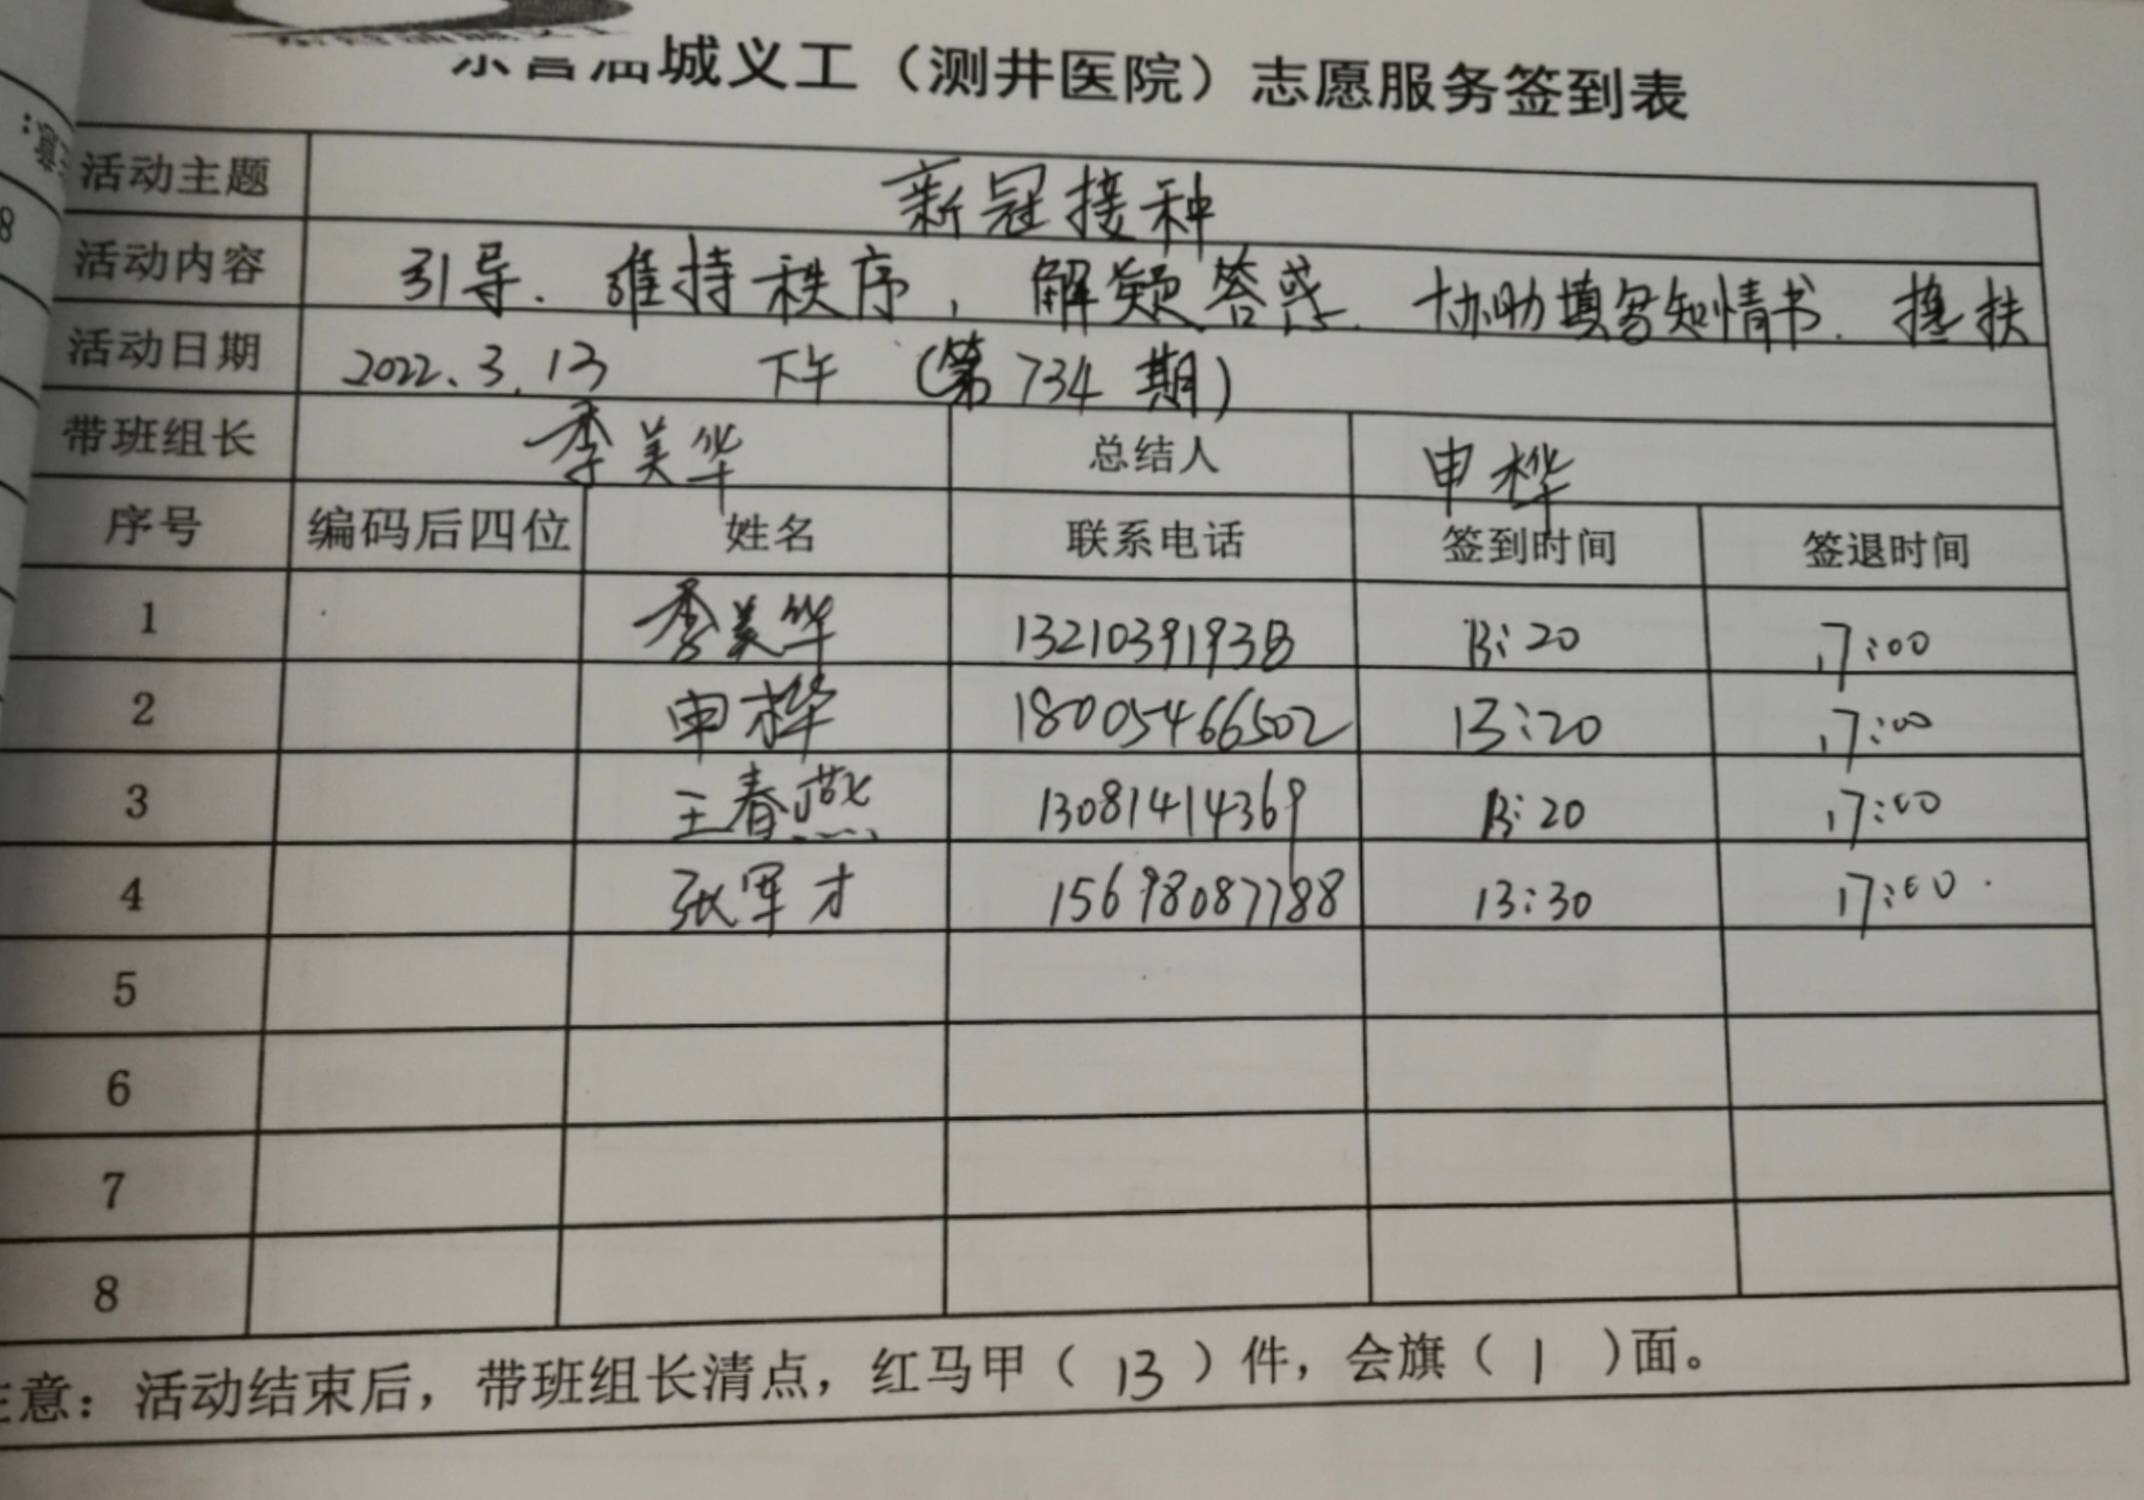 东营油城义工（测井医院）志愿服务签到表
活动主题 新冠接种
活动内容 引导、维持秩序，解疑答惑、协助填写知情书、搀扶
活动日期 2022.3.13 下午（第734期）
带班组长 季美华 总结人 申桦
序号 编码后四位 姓名 联系电话 签到时间 签退时间
1 季美华 13:20 17:00
2 申桦 18005466502 13:20 17:00
3 王春燕 13081414369 13:20 17:00
4 张军才 15698087788 13:30 17:00
5
6
7
8
注意：活动结束后，带班组长清点，红马甲（13）件，会旗（1）面。